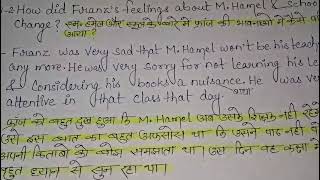 -2 How did Franz's feelings about M. Hamel & school
Change? एम. हैमेल और स्कूल के बारे में फ्रांज की भावनाओं में कैसे
आया?
- Franz was very sad that M. Hamel won't be his teach
any more. He was very sorry for not learning his le
& Considering his books a nuisance. He was very
attentive in that class that day.
फ्रांज को बहुत दुख हुआ कि M. Hamel अब उसके शिक्षक नहीं रहेंगे
उसे इस बात का बहुत अफसोस था कि उसने पाठ नहीं
अपनी किताबों को बोझ समझता था। उस दिन वह कक्षा में
बहुत ध्यान से सुन रहा था।